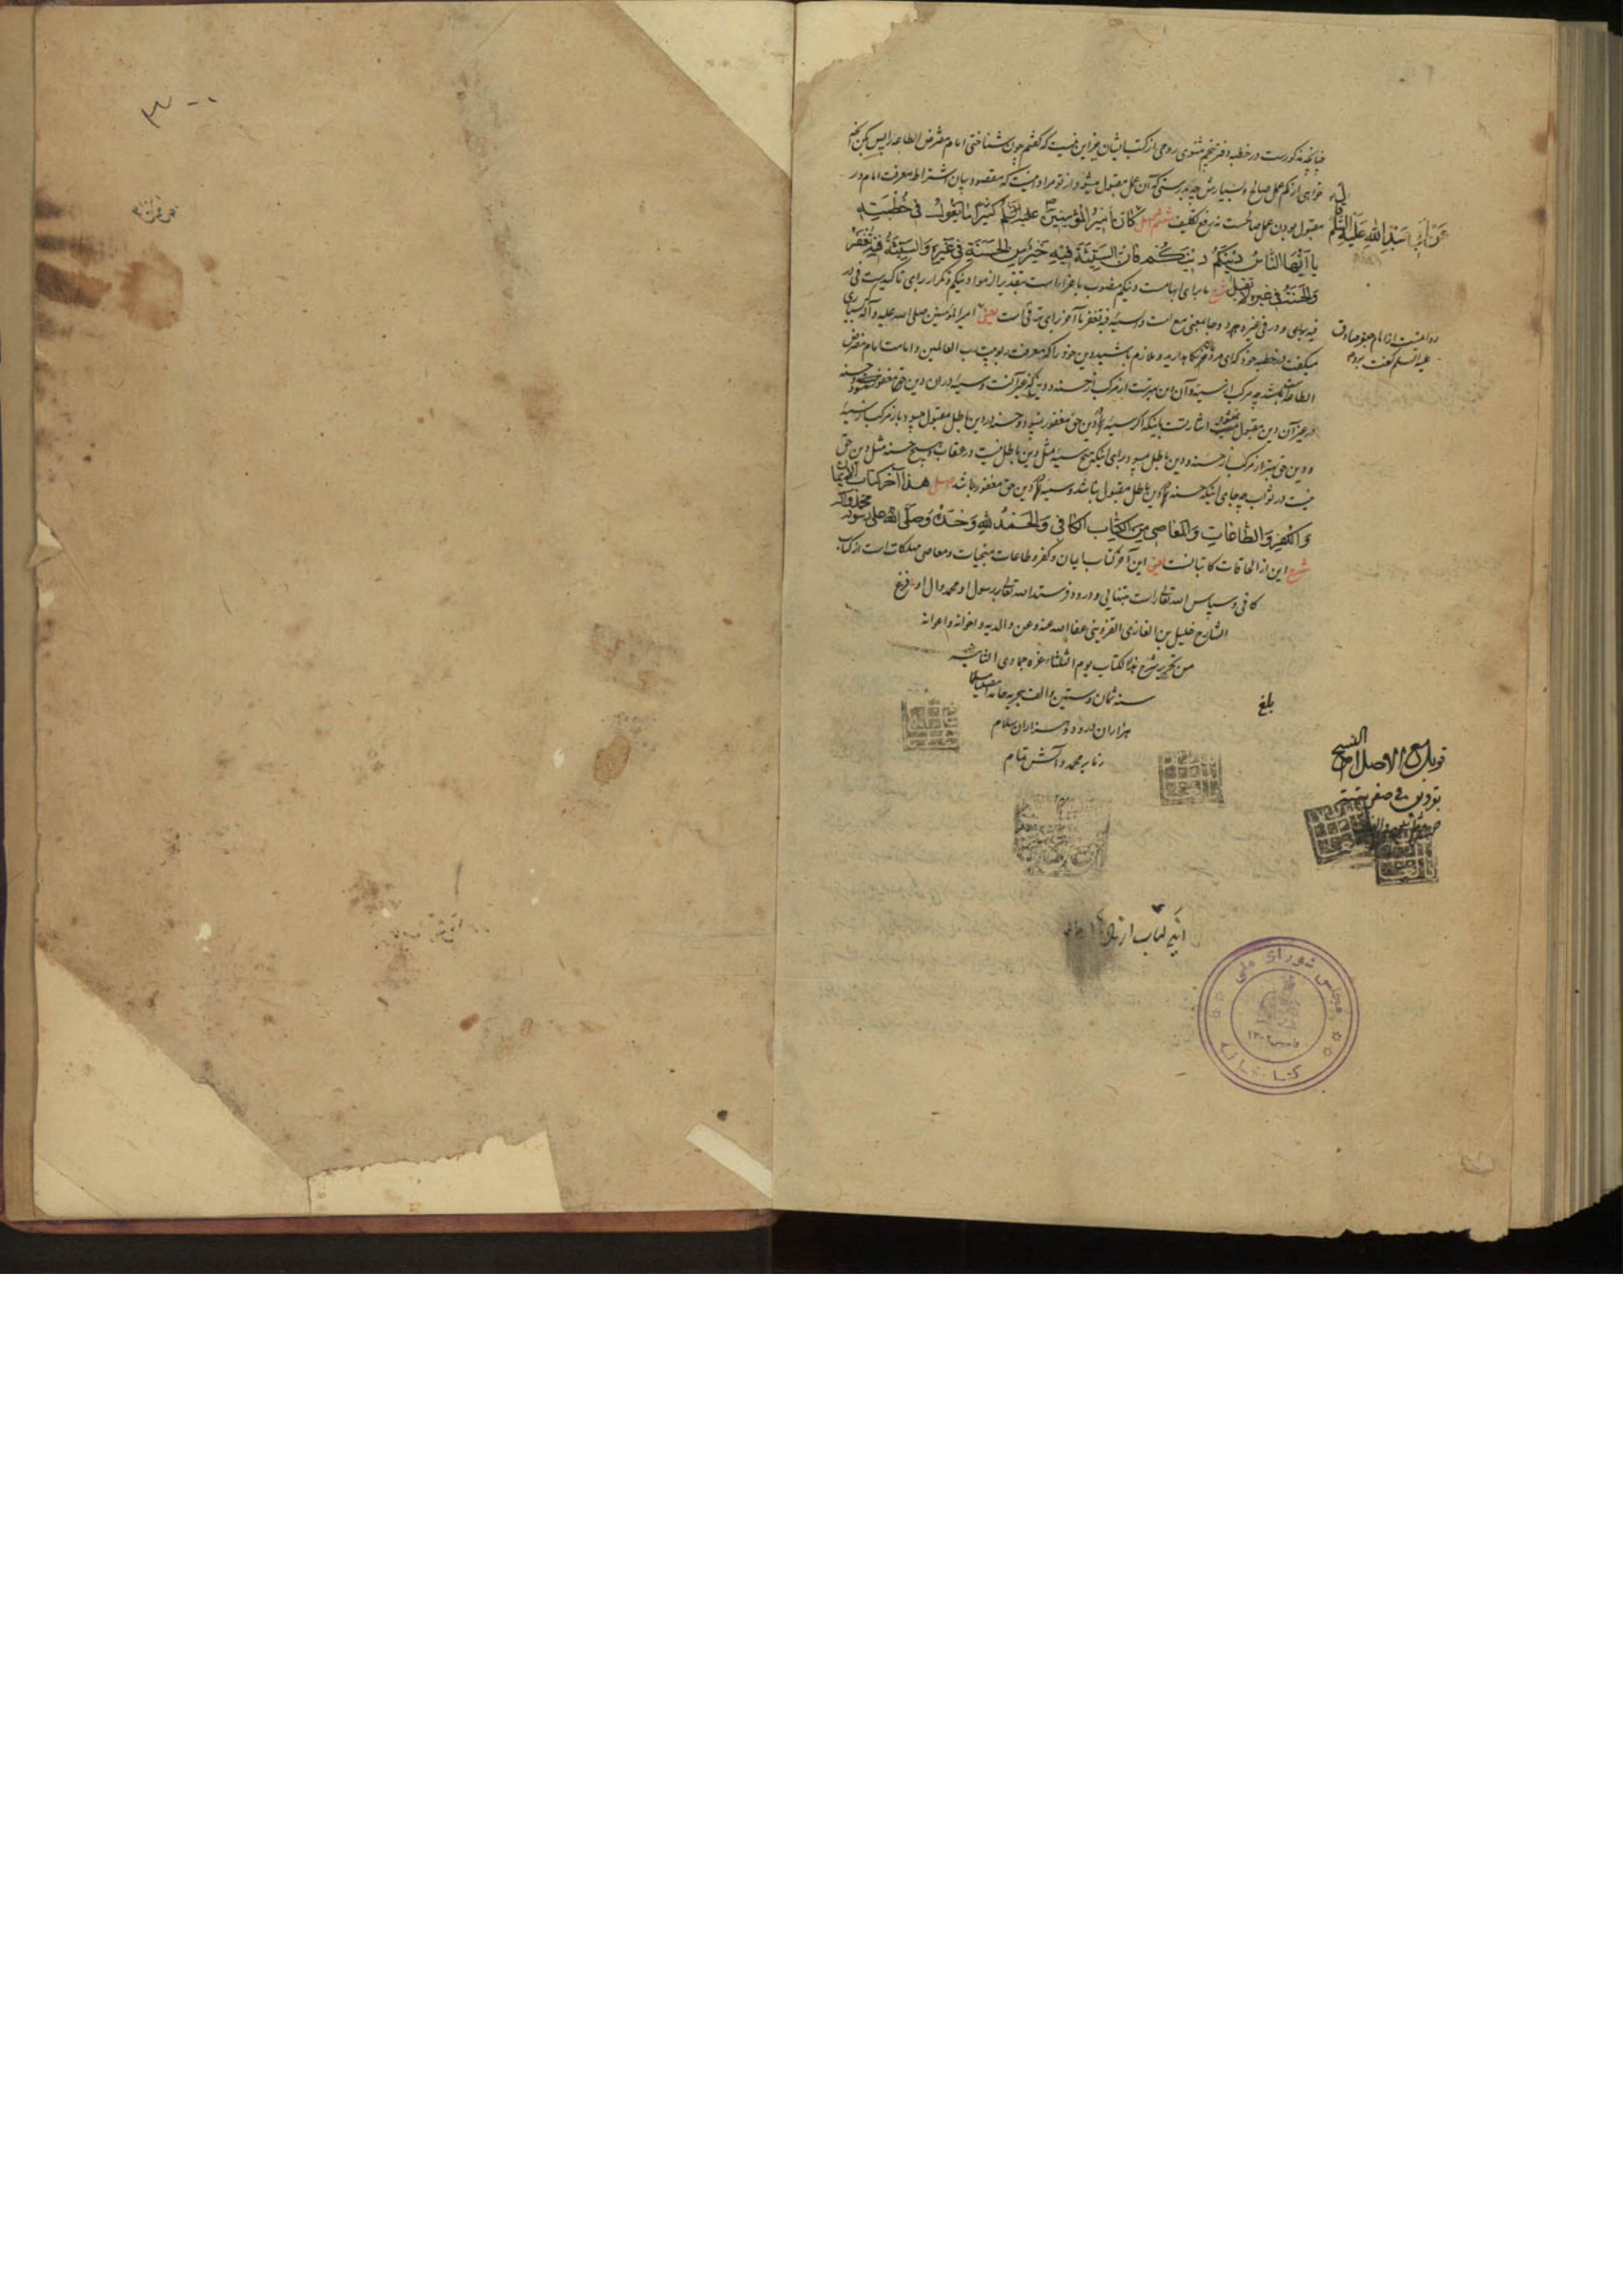 چنانچه مذکورست در خطبه دفتر پنجم مثنوی رومی از کتب ایشان جز این نیست که گفتم چون شناختی امام مفترض الطاعه را پس بکن آنچه
خواهی از کم عمل صالح و بسیارش چه بدرستی که آن عمل مقبول میشود از تو مراد اینست که مقصود بیان اشتراط معرفت امام در
مقبول بودن عمل صالحست نه رفع تکلیف ششم اصل كان أمير المؤمنين عليه السلام كثيرا ما يقول في خطبته
عن أبي عبد الله عليه السلام قال
يا أيها الناس دينكم دينكم فإن السيئة فيه خير من الحسنة في غيره والسيئة فيه تغفر
والحسنة في غيره لا تقبل شرح ما برای ابهامست و دینکم منصوب باغراء است بتقدیر الزموا دینکم و تکرار برای تاکیدست فی در
فیه برای و در فی غیره بمعنی مع است والسیئة فیه تغفر تا آخر برای ترقی است یعنی امیر المؤمنین صلی الله علیه و آله بسیاری
روایتست از امام جعفر صادق
علیه السلم گفت بود
میگفت در خطبه خود که ای مردمان نگاه دارید و ملازم باشید دین خود را که معرفت ربوبیت رب العالمین و امامت امام مفترض
الطاعه باشد چه مرکب از سیئه و آن دین بهترست از مرکب از حسنه و دینی که غیر آنست و سیئه در آن دین حق مغفور میشود و حسنه
در غیر آن دین مقبول نمیشود اشارتست باینکه اگر سیئه در دین حق مغفور نمیبود و حسنه در دین باطل مقبول میبود باز مرکب از سیئه
و دین حق بهتر از مرکب از حسنه و دین باطل میبود برای اینکه هیچ سیئه مثل دین باطل نیست در عقاب و هیچ حسنه مثل دین حق
نیست در ثواب چه جای اینکه حسنه در دین باطل مقبول نباشد و سیئه در دین حق مغفور باشد اصل هذا آخر كتاب الإيمان
والكفر والطاعات والمعاصي من الكتاب الكافي والحمد لله وحده وصلى الله على رسوله محمد وآله
شرح این از الحاقات کاتبانست یعنی این آخر کتاب ایمان و کفر و طاعات منجیات و معاصی مهلکات است از کتاب
کافی و سپاس الله تعالی راست بتنهایی و درود فرستد الله تعالی بر رسول او محمد و آل او فرغ
الشارح خليل بن الغازي القزويني عفا الله عنه وعن والديه وإخوانه وأعوانه
من تحرير شرح هذا الكتاب يوم الثلثاء غرة جمادى الثانية
سنه ثمان وستين والف هجريه حامدا مصليا
هزاران درود و هزاران سلام
زما بر محمد و آلش تمام
بلغ
قوبل مع الاصل اصح النسخ
بقزوین في صفر
اینکتاب از
مجلس شورای ملی
کتابخانه
تاسیس ۱۳۰۲
۳۰۰